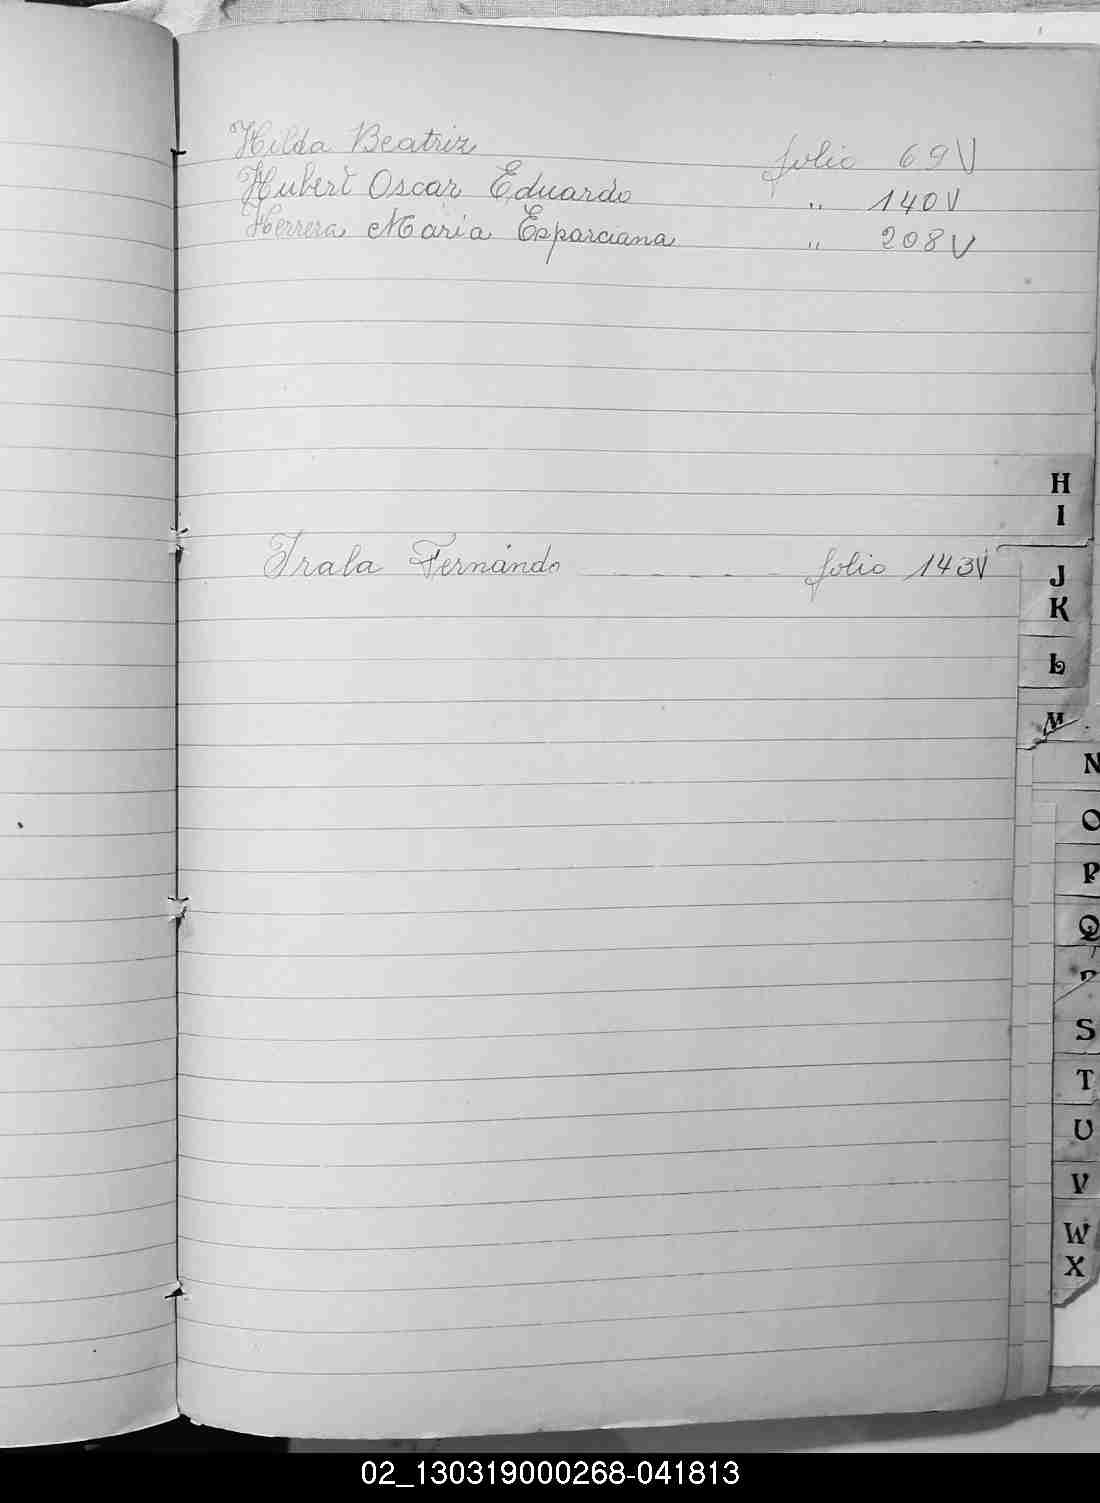 Hilda Beatriz folio 69V
Hubert Oscar Eduardo " 140V
Herrera Maria Esparciana " 208V
H
I
Irala Fernándo folio 143V
J
K
L
M
N
O
P
Q
R
S
T
U
V
W
X
02_130319000268-041813